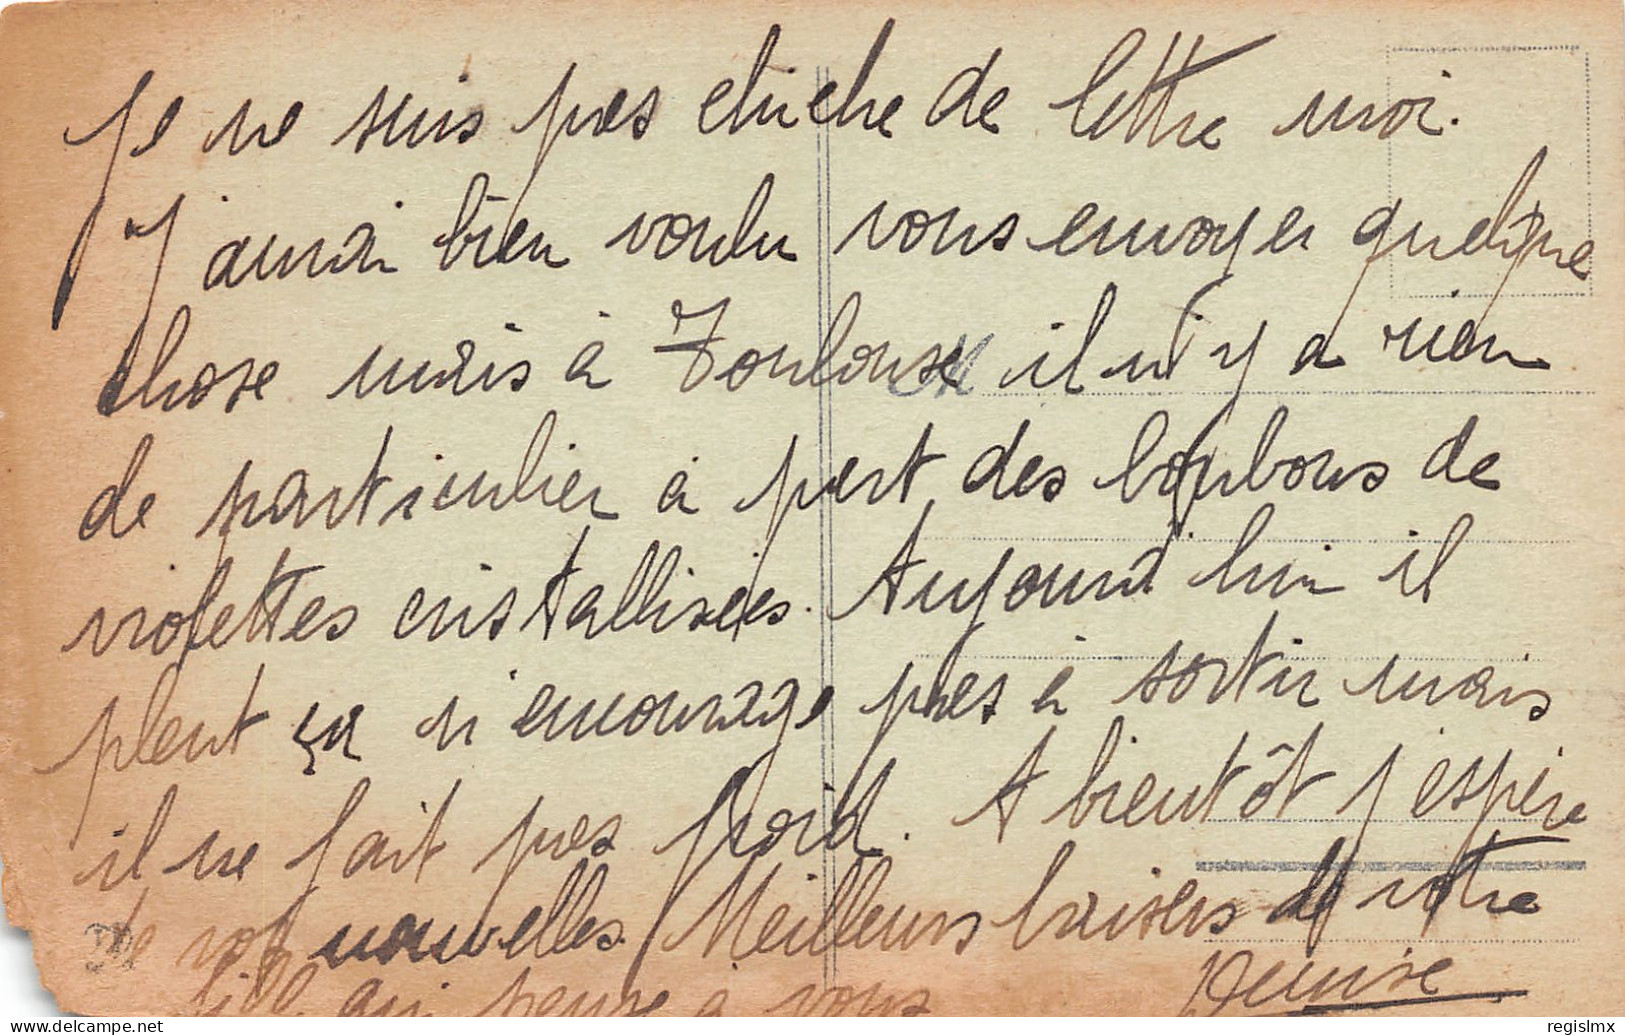 Je ne suis pas chiche de lettre moi.
J'aurai bien voulu vous envoyer quelque
chose mais à Toulouse il n'y a rien
de particulier à part des bonbons de
violettes cristallisées. Aujourd'hui il
pleut ça n'encourage pas à sortir mais
il ne fait pas froid. A bientôt j'espère
de vos nouvelles. Meilleurs baisers de votre
fille qui pense à vous Denise
regislmx
www.delcampe.net